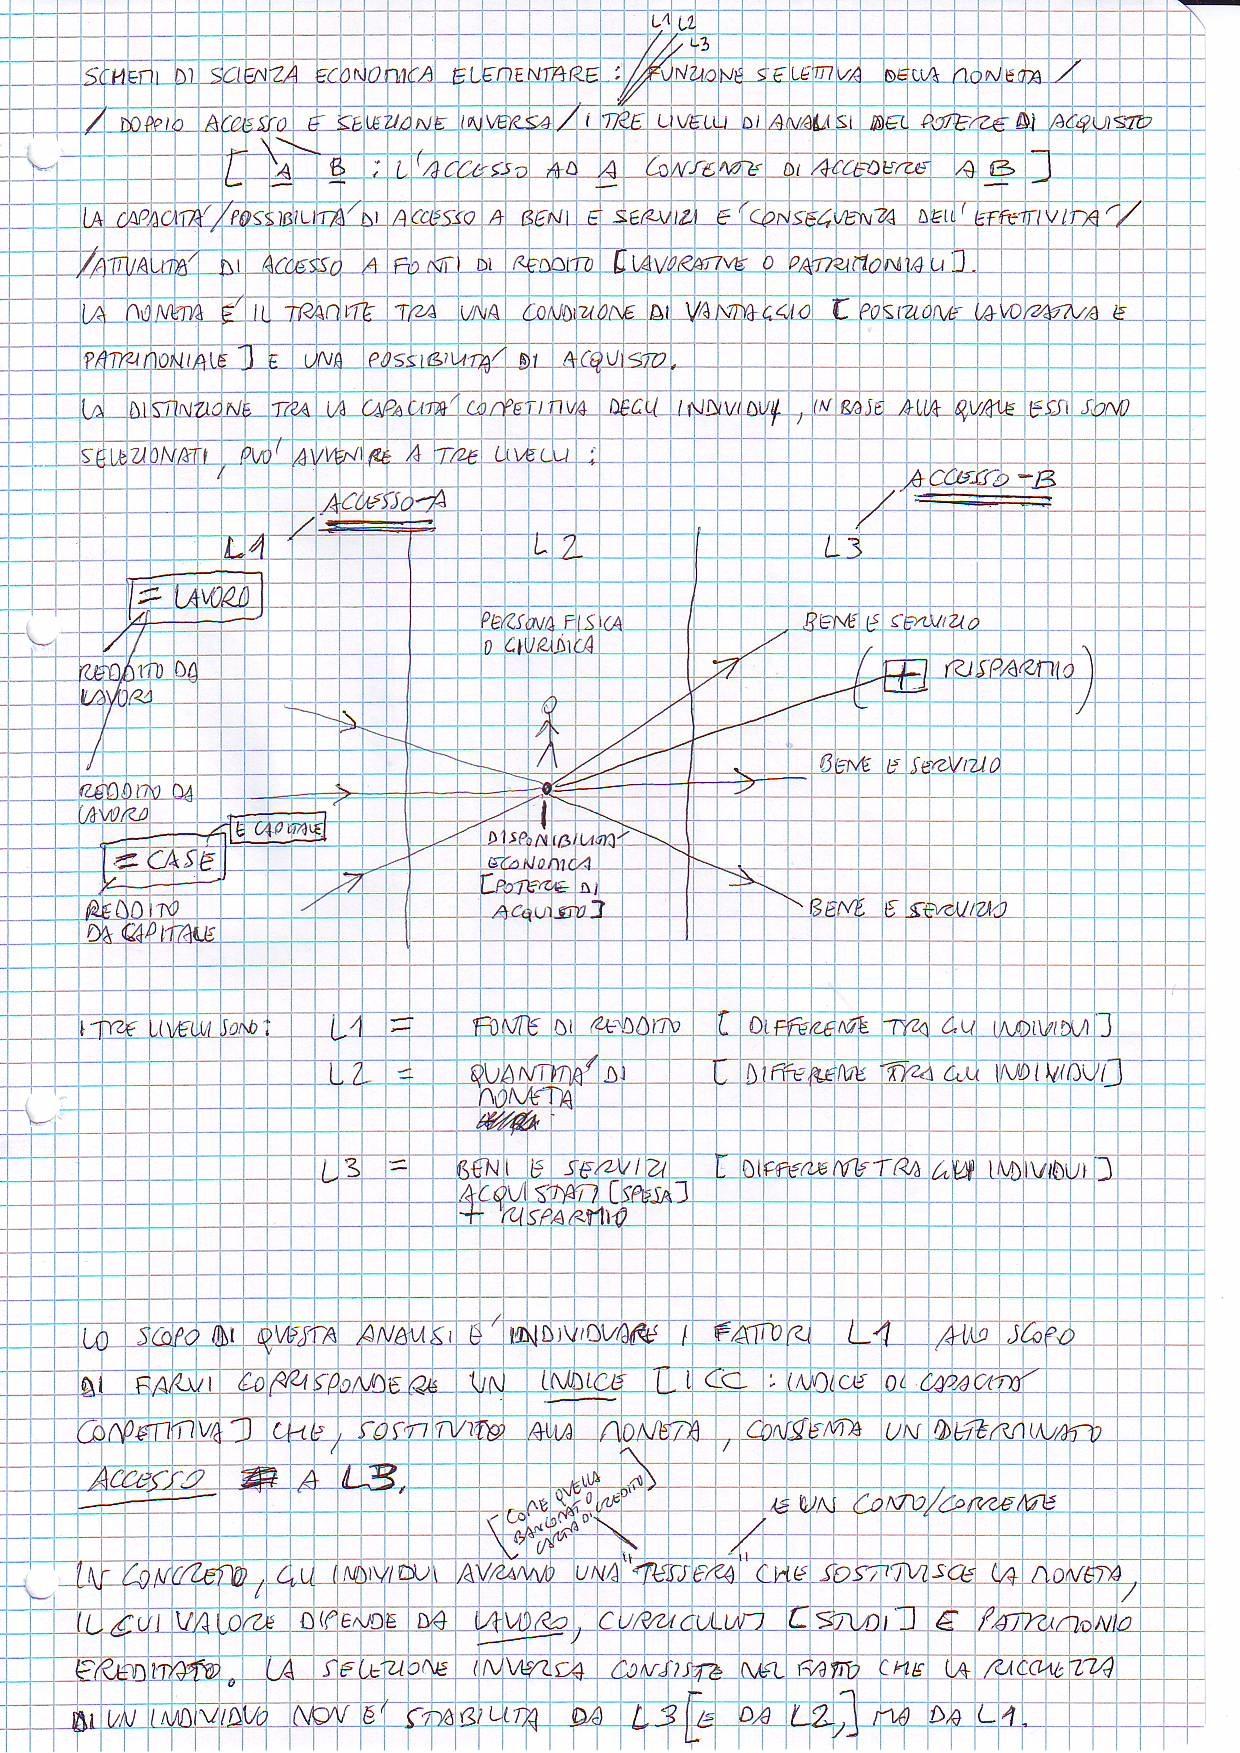 L1 L2
L3
SCHEMI DI SCIENZA ECONOMICA ELEMENTARE : / FUNZIONE SELETTIVA DELLA MONETA /
/ DOPPIO ACCESSO E SELEZIONE INVERSA / I TRE LIVELLI DI ANALISI DEL POTERE DI ACQUISTO
[ A B : L'ACCESSO AD A CONSENTE DI ACCEDERE A B ]
LA CAPACITA'/POSSIBILITA' DI ACCESSO A BENI E SERVIZI E' CONSEGUENZA DELL'EFFETTIVITA'/
/ATTUALITA' DI ACCESSO A FONTI DI REDDITO [LAVORATIVE O PATRIMONIALI].
LA MONETA E' IL TRAMITE TRA UNA CONDIZIONE DI VANTAGGIO [POSIZIONE LAVORATIVA E
PATRIMONIALE] E UNA POSSIBILITA' DI ACQUISTO.
LA DISTINZIONE TRA LA CAPACITA' COMPETITIVA DEGLI INDIVIDUI, IN BASE ALLA QUALE ESSI SONO
SELEZIONATI, PUO' AVVENIRE A TRE LIVELLI :
ACCESSO-A
ACCESSO-B
L1 L2 L3
= LAVORO
PERSONA FISICA
O GIURIDICA
BENE E SERVIZIO
REDDITO DA
LAVORO
( + RISPARMIO )
BENE E SERVIZIO
REDDITO DA
LAVORO
E CAPITALE
= CASE
DISPONIBILITA'
ECONOMICA
[POTERE DI
ACQUISTO]
REDDITO
DA CAPITALE
BENE E SERVIZIO
I TRE LIVELLI SONO : L1 = FONTE DI REDDITO [ DIFFERENTE TRA GLI INDIVIDUI ]
L2 = QUANTITA' DI [ DIFFERENTE TRA GLI INDIVIDUI ]
MONETA
L3 = BENI E SERVIZI [ DIFFERENTE TRA GLI INDIVIDUI ]
ACQUISTATI [SPESA]
+ RISPARMIO
LO SCOPO DI QUESTA ANALISI E' INDIVIDUARE I FATTORI L1 ALLO SCOPO
DI FARVI CORRISPONDERE UN INDICE [ICC : INDICE DI CAPACITA'
COMPETITIVA] CHE, SOSTITUITO ALLA MONETA, CONSENTA UN DETERMINATO
ACCESSO A L3.
[COME QUELLA
BANCOMAT O
CARTA DI CREDITO]
E UN CONTO/CORRENTE
IN CONCRETO, GLI INDIVIDUI AVRANNO UNA "TESSERA" CHE SOSTITUISCE LA MONETA,
IL CUI VALORE DIPENDE DA LAVORO, CURRICULUM [STUDI] E PATRIMONIO
EREDITATO. LA SELEZIONE INVERSA CONSISTE NEL FATTO CHE LA RICCHEZZA
DI UN INDIVIDUO NON E' STABILITA DA L3 [E DA L2,] MA DA L1.